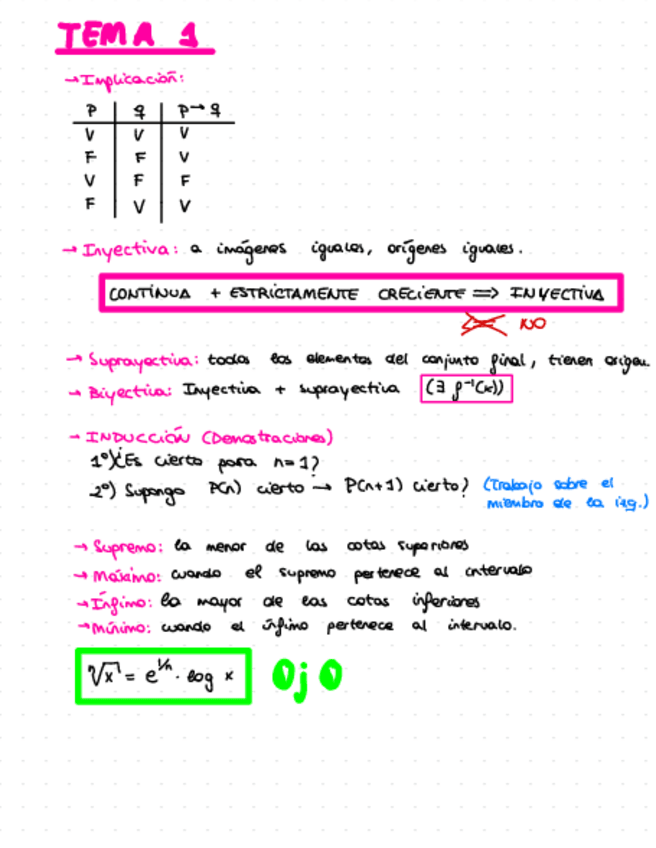 TEMA 1
→ Implicación:
P | q | P → q
V | V | V
F | F | V
V | F | F
F | V | V
→ Inyectiva: a imágenes iguales, orígenes iguales.
CONTÍNUA + ESTRÍCTAMENTE CRECIENTE ⟹ INYECTIVA
⟸ NO
→ Suprayectiva: todos los elementos del conjunto final, tienen origen.
→ Biyectiva: Inyectiva + suprayectiva (∃ f⁻¹(x))
→ INDUCCIÓN (Demostraciones)
1º) ¿Es cierto para n=1?
2º) Supongo P(n) cierto → P(n+1) cierto? (Trabajo sobre el
miembro de la izq.)
→ Supremo: la menor de las cotas superiores
→ Máximo: cuando el supremo pertenece al intervalo
→ Ínfimo: la mayor de las cotas inferiores
→ Mínimo: cuando el ínfimo pertenece al intervalo.
ⁿ√x = e^{1/n} · log x OjO